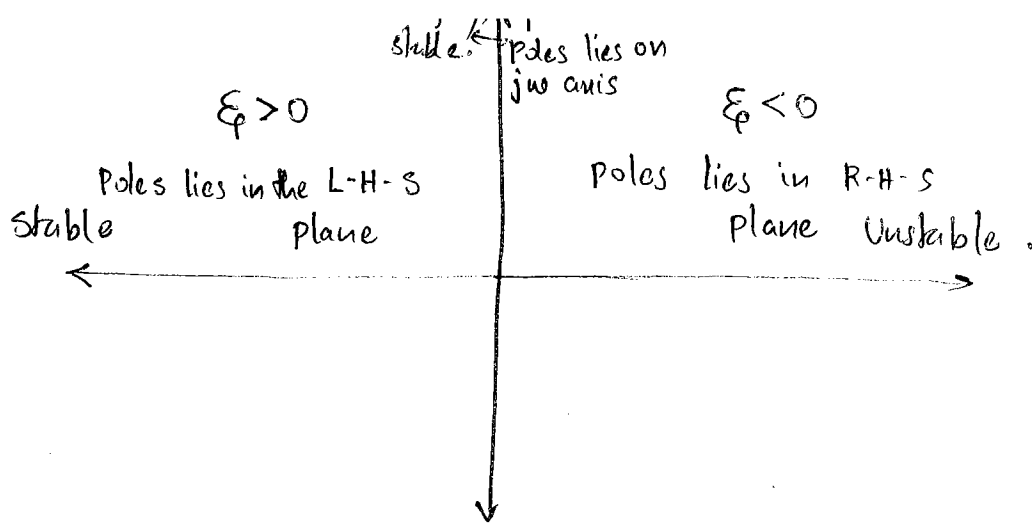 stable. poles lies on
jw axis
ξ > 0
ξ < 0
Poles lies in the L-H-S
plane
Stable
poles lies in R-H-S
plane Unstable.